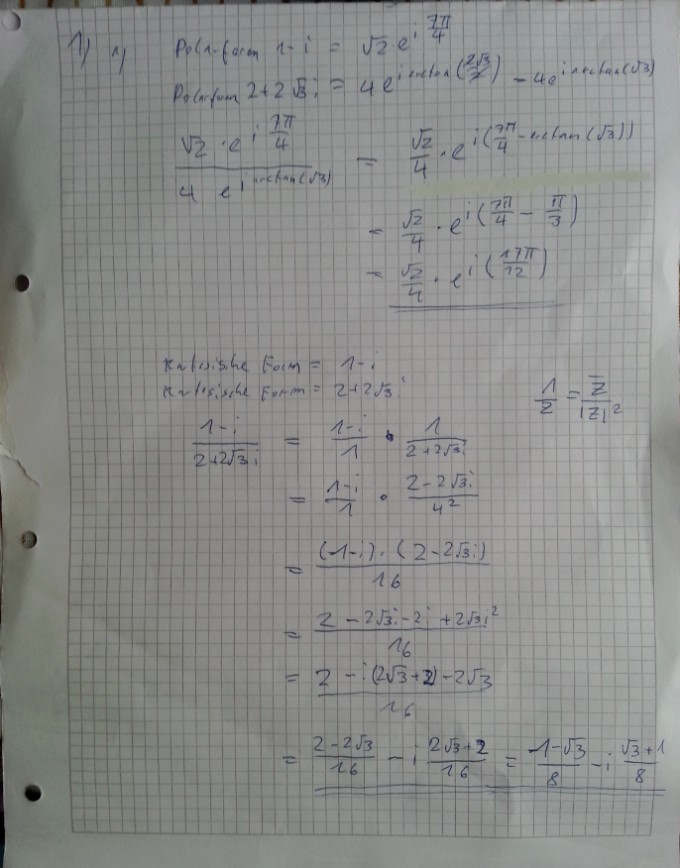 1) a) Polarform 1-i = √2·e^{i 7π/4}
Polarform 2+2√3i = 4e^{i arctan(2√3/2)} = 4e^{i arctan(√3)}
√2·e^{i 7π/4} / 4 e^{i arctan(√3)} = √2/4 · e^{i(7π/4 - arctan(√3))}
= √2/4 · e^{i(7π/4 - π/3)}
= √2/4 · e^{i(17π/12)}
Kartesische Form = 1-i
Kartesische Form = 2+2√3i
1/z = z̄/|z|²
(1-i)/(2+2√3i) = (1-i)/1 · 1/(2+2√3i)
= (1-i)/1 · (2-2√3i)/4²
= (1-i)·(2-2√3i)/16
= (2-2√3i-2i+2√3i²)/16
= (2-i(2√3+2)-2√3)/16
= (2-2√3)/16 - i (2√3+2)/16 = (1-√3)/8 - i (√3+1)/8